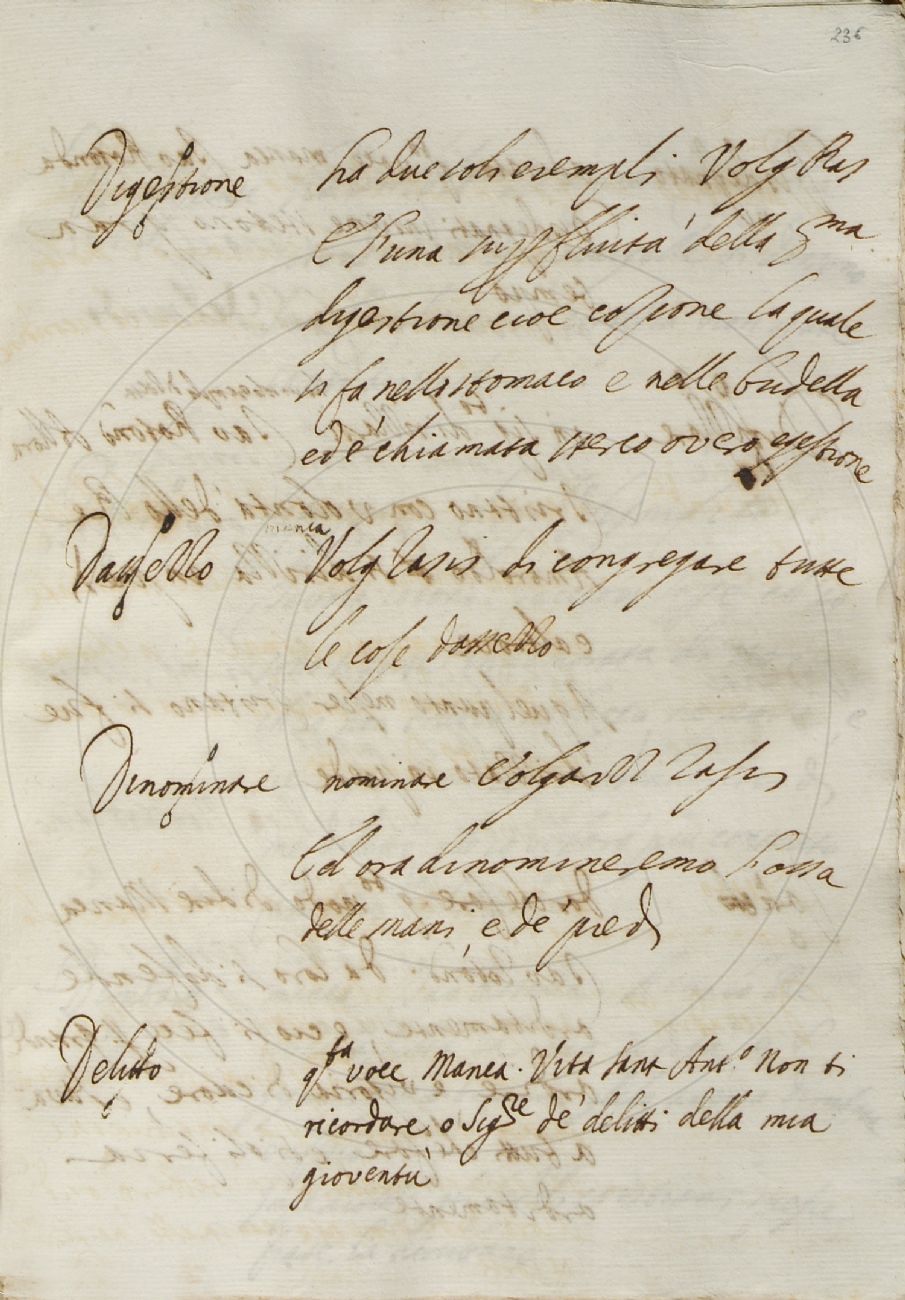 236
Digestione ha due soli esempli Volg Ras
E È una supfluità della 3ma
digestione cioè cozione la quale
si fa nello stomaco e nelle budella
ed è chiamata sterco overo egestione
manca
Dassello Volg Rasis di congregare tutte
le cose dassello
Dinominare nominare Volgarizz Rasis
Ed ora dinomineremo l'ossa
delle mani, e de' piedi
Delitto qta voce Manca. Vita Sant Anto. Non ti
ricordare o Sigre de' delitti della mia
gioventù